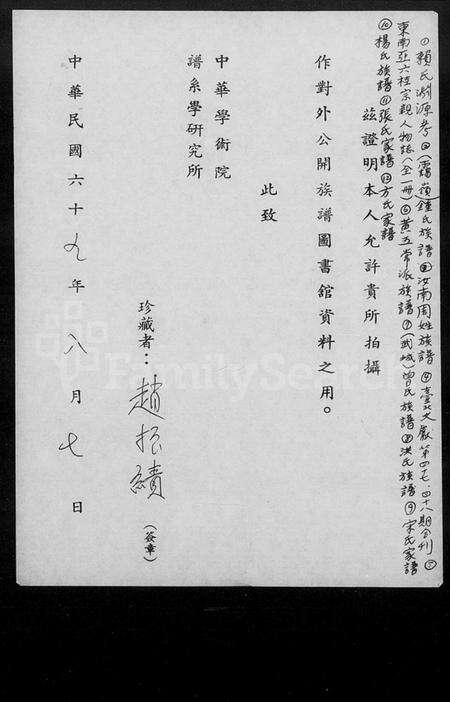 ①賴氏淵源考②(霞嶺)鍾氏族譜③汝南周姓族譜④臺北文獻第四七.四十八期合刊⑤
東南亞六桂宗親人物誌(全一冊)⑥黃五常派族譜⑦(武城)曾氏族譜⑧洪氏族譜⑨宋氏家譜
⑩楊氏族譜⑪張氏家譜⑫方氏家譜
茲證明本人允許貴所拍攝
作對外公開族譜圖書館資料之用。
此致
中華學術院
譜系學研究所
珍藏者：趙振績(簽章)
中華民國六十九年八月七日
FamilySearch